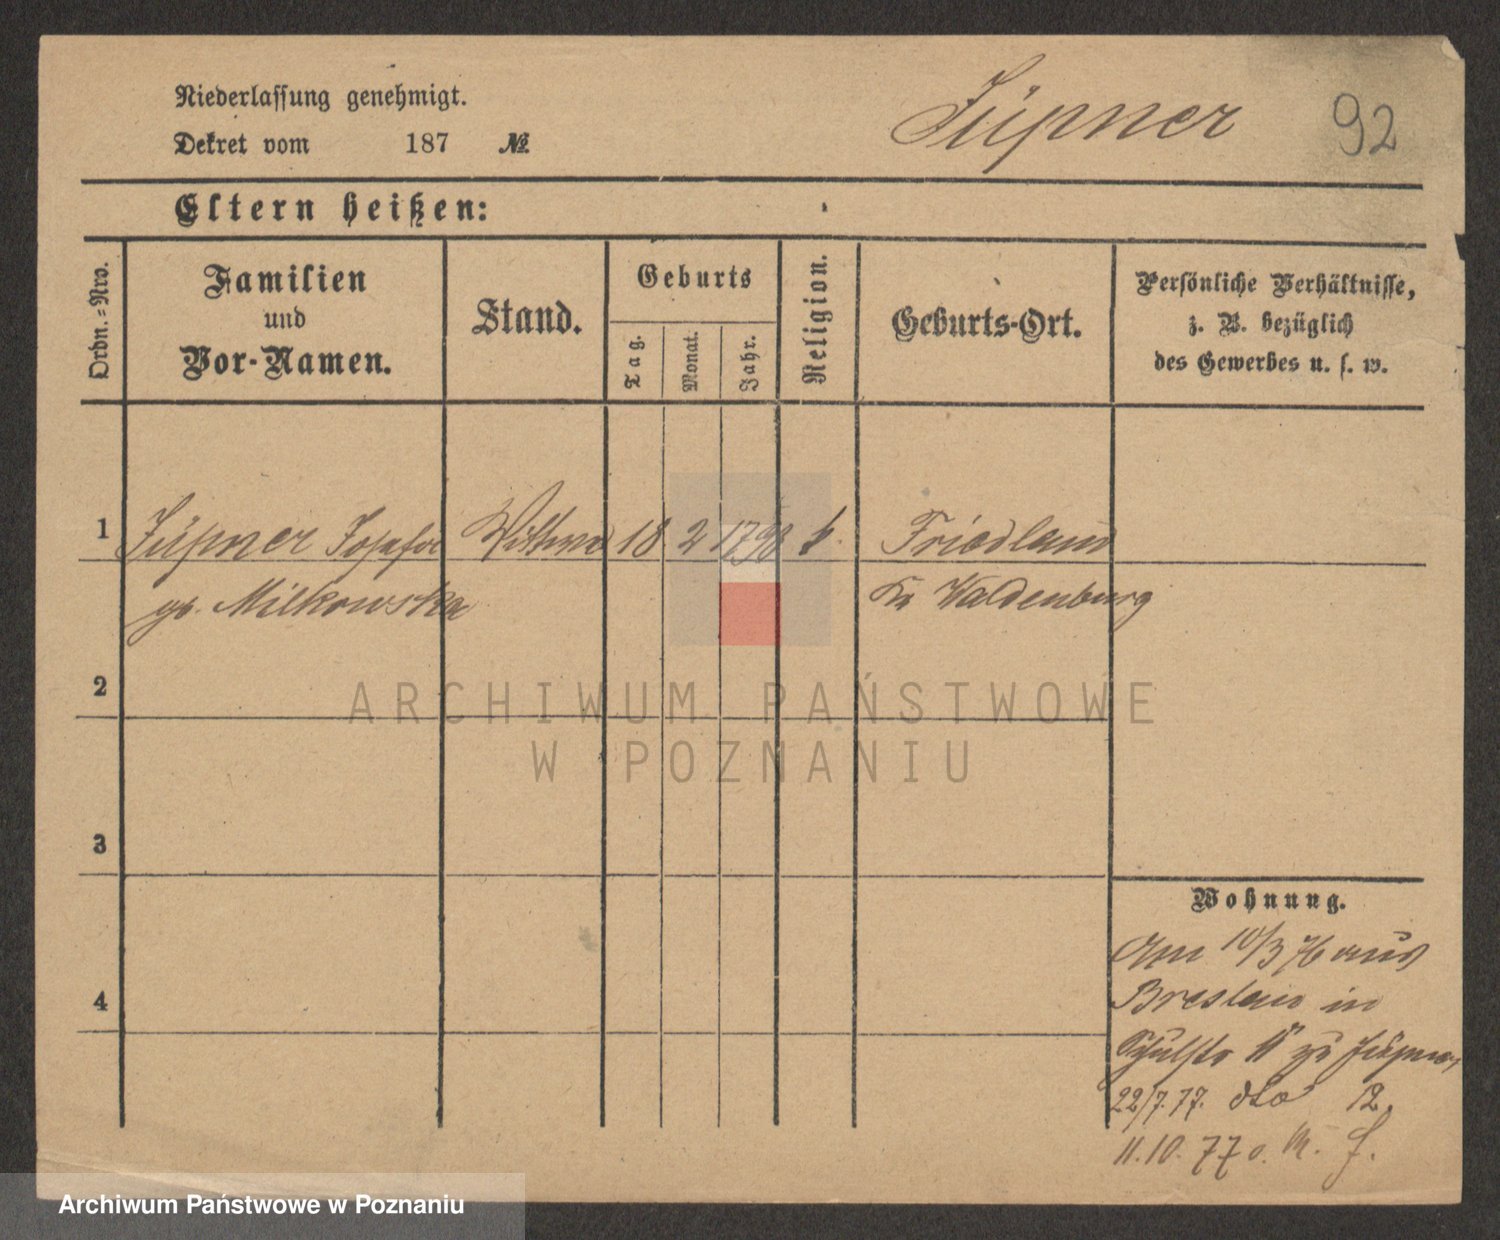 Niederlassung genehmigt.
Dekret vom 187 №
Jüpner 92
Eltern heißen:
Ordn.-Nro.
Familien
und
Vor-Namen.
Stand.
Geburts
Tag.
Monat.
Jahr.
Religion.
Geburts-Ort.
Persönliche Verhältnisse,
z. B. bezüglich
des Gewerbes u. s. w.
1 Jüpner Josefa Wittwe 18 2 1798 k. Friedland
gb. Milkowska Kr Waldenburg
2
3
4
Wohnung.
Am 10/3 76 aus
Breslau in
Schulstr 11 zu Jüpner,
22/7. 77. dto 12.
11. 10. 77 o.
ARCHIWUM PAŃSTWOWE
W POZNANIU
Archiwum Państwowe w Poznaniu